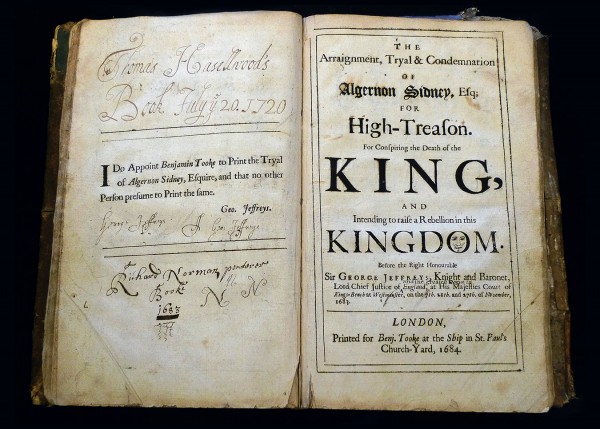 Thomas Haselwood's
Book July yᵉ 20. 1720
I Do Appoint Benjamin Tooke to Print the Tryal
of Algernon Sidney, Esquire, and that no other
Person presume to Print the same.
Geo. Jeffreys.
Geo: Jeffreys
Richard Norman
Book
N N
1683
THE
Arraignment, Tryal & Condemnation
OF
Algernon Sidney, Esq;
FOR
High-Treason.
For Conspiring the Death of the
KING,
AND
Intending to raise a Rebellion in this
KINGDOM.
Before the Right Honourable
Sir GEORGE JEFFREYS, Knight and Baronet,
Lord Chief Justice of England, at His Majesties Court of
Kings-Bench at Westminster, on the 7th. 21th. and 27th. of November,
1683.
LONDON,
Printed for Benj. Tooke at the Ship in St. Paul's
Church-Yard, 1684.